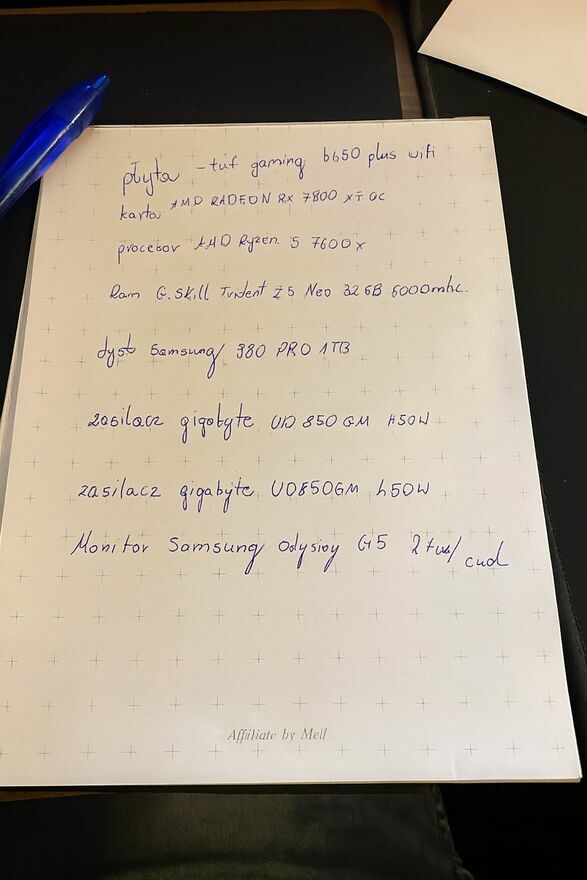 płyta - tuf gaming b650 plus wifi
karta AMD RADEON RX 7800 XT OC
procesor AMD Ryzen 5 7600x
Ram G.Skill Trident Z5 Neo 32GB 6000mhz
dysk Samsung 980 PRO 1TB
zasilacz gigabyte UD 850 GM
zasilacz gigabyte UD850GM
Monitor Samsung Odysioy G5
Affiliate by Mell